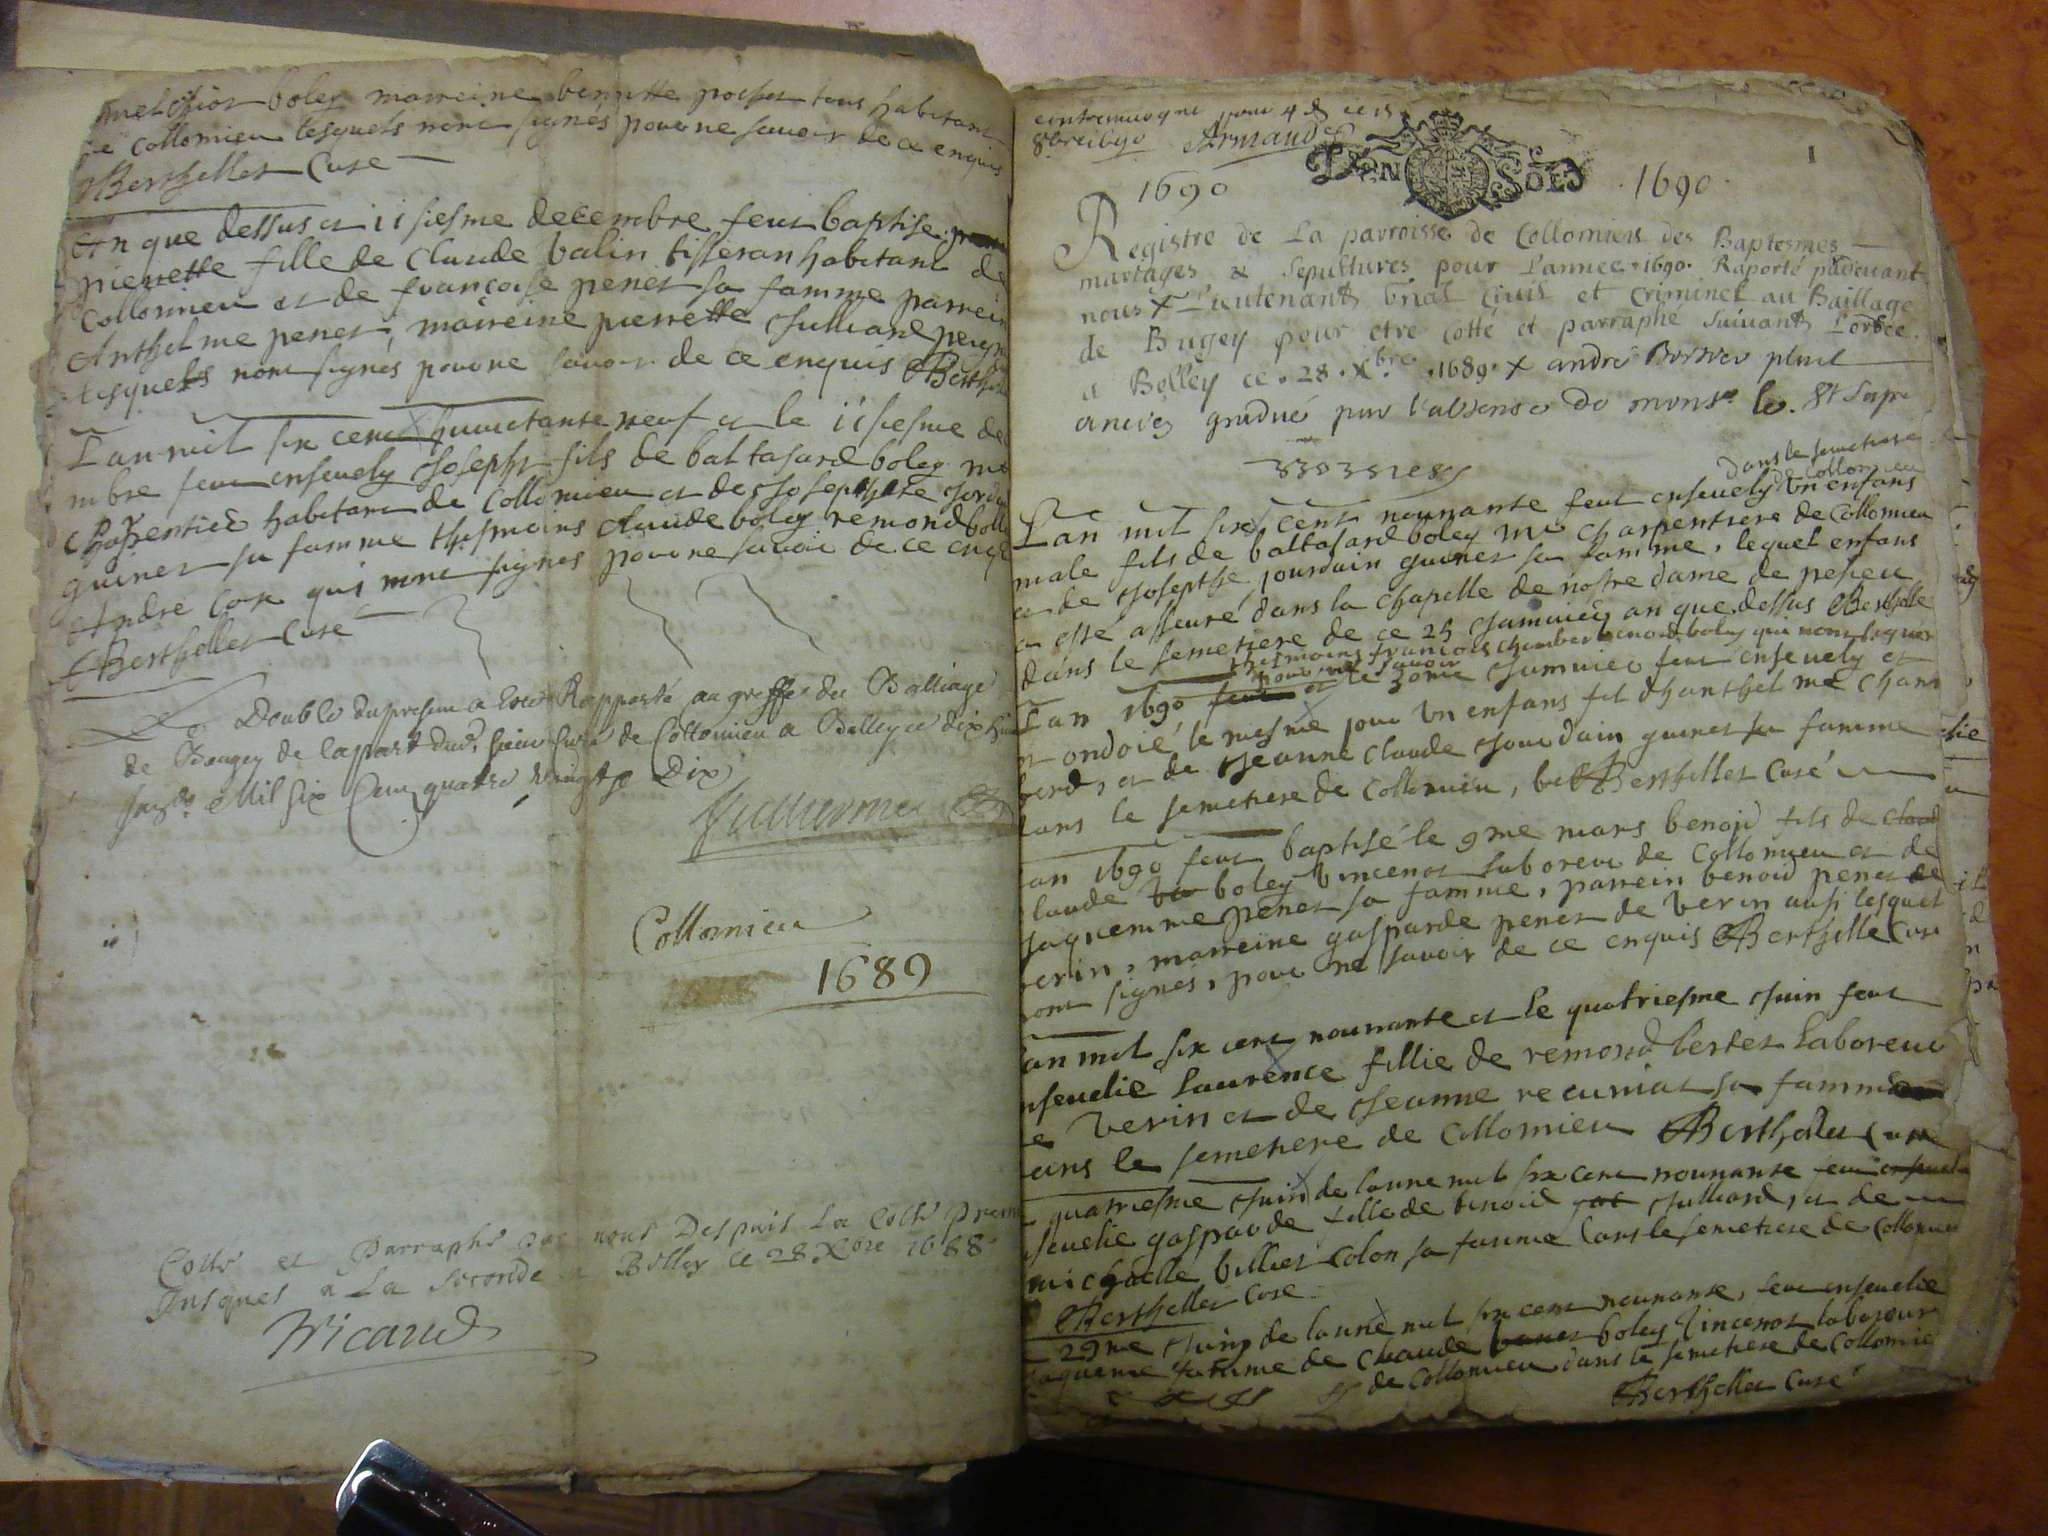 melchior boley marreine benoitte pochet tous habitant
de Collomieu lesquels nont signés pour ne savoir de ce enquis
Berthellet Curé
An que dessus et 11 siesme decembre feut baptisé
pierrette fille de Claude balin tisseran habitant de
Collomieu et de françoise penet sa famme parrein
Anthelme penet, marreine pierrette Julliand
lesquels nont signés pour ne savoir de ce enquis Berthel
Lan mil six cent huictante neuf et le 11 siesme de
mbre feut ensevely Joseph fils de baltasard boley
Charpentier habitant de Collomieu et de Josephte Jord
guinet sa famme thesmoins Claude boley remond
Andre Cox qui nont signés pour ne savoir de ce enq
Berthellet Curé
Le Double du present a esté Rapporté au greffe du Balliage
de Beugey de la part dud. sieur Curé de Collomieu a Belley ce dix
Mil six Cent quatre vingts Dix
Collomieu
1689
Cotté et Parraphé par nous Despuis La Cotte Prem
Jusques a La seconde a Belley ce 28 Xbre 1688
Vicaud
pour 4 d ce 13
8bre 1690 Armand
I
DEN SOLS
1690 1690
Registre de La parroisse de Collomieu des Baptesmes
mariages & Sepultures pour Lannee 1690 Raporté padevant
nous X Lieutenant Gnal Civil et Criminel au Baillage
de Bugey pour etre cotté et parraphé suivant Lord.ce
a Belley ce 28 Xbre 1689 X andré plus
ancien gradué pour l'absence de mons.r le
dans le semetiere
de Collomieu
Lan mil six cent nonnante feut ensevely Un enfans
male fils de baltasard boley me Charpentiere de Collomieu
et de Josepthe jourdain guinet sa famme, lequel enfans
a esté asseuré dans la Chapelle de nostre dame de peseu
dans le semetiere de ce 25 Janvier an que dessus Berthelle
thesmoins francois Chamber boley qui nont signer
pour ne savoir
Lan 1690 feut et le 30me Janvier feut ensevely et
et ondoié le mesme jour Un enfans fil dhanthelme Cham
berd, et de Jeanne Claude Jourdain guinet sa famme
dans le semetiere de Collomieu, Berthellet Curé
Lan 1690 feut baptisé le 9me mars benoid fils de claud
Claude boley Vincenot laboreur de Collomieu et de
Jaquemme penet sa famme, parrein benoid penet de
Verin, marreine gasparde penet de Verin ausi lesquel
nont signés, pour ne savoir de ce enquis Berthelle Curé
Lan mil six cent nonnante et le quatriesme Juin feut
ensevelie Laurence fillie de remond bertet Laboreur
de Verin et de Jeanne recumat sa famme
dans le semetiere de Collomieu Berthellet Curé
Le quatriesme Juin de lanne mil six cent nonnante feut ensevel
ensevelie gasparde fille de benoid Julliard, et de
michaelle billiet Colon sa famme dans le semetiere de Collomieu
Berthellet Curé
Le 29me Juin de lanne mil six cent nonnante, feut ensevelie
Jaqueme famme de Claude boley Vincenot laboreur
de Collomieu dans le semetiere de Collomie
Berthellet Curé